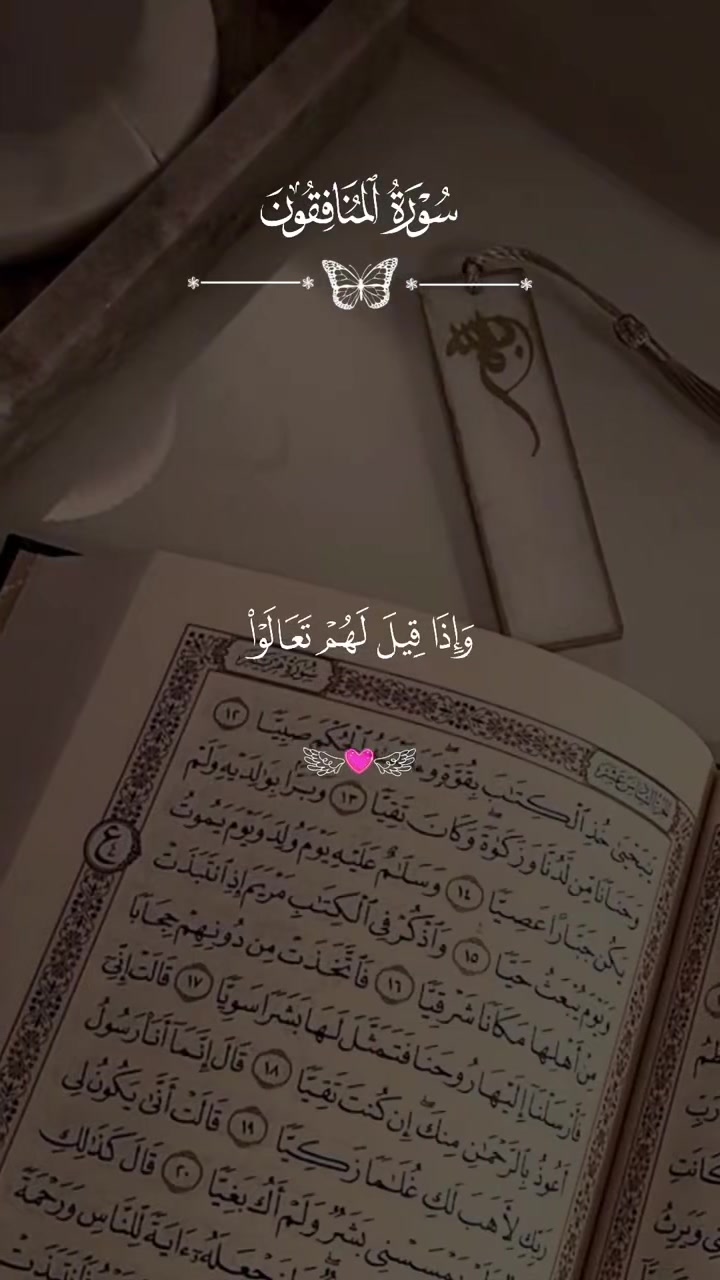 سُورَةُ ٱلْمُنَافِقُونَ
وَإِذَا قِيلَ لَهُمْ تَعَالَوْا۟
سُورَةُ مَرْيَم
يَـٰيَحْيَىٰ خُذِ ٱلْكِتَـٰبَ بِقُوَّةٍ ٱلْحُكْمَ صَبِيًّا ١٢
وَحَنَانًا مِّن لَّدُنَّا وَزَكَوٰةً وَكَانَ تَقِيًّا ١٣ وَبَرًّۢا بِوَٰلِدَيْهِ وَلَمْ
يَكُن جَبَّارًا عَصِيًّا ١٤ وَسَلَـٰمٌ عَلَيْهِ يَوْمَ وُلِدَ وَيَوْمَ يَمُوتُ
وَيَوْمَ يُبْعَثُ حَيًّا ١٥ وَٱذْكُرْ فِى ٱلْكِتَـٰبِ مَرْيَمَ إِذِ ٱنتَبَذَتْ
مِنْ أَهْلِهَا مَكَانًا شَرْقِيًّا ١٦ فَٱتَّخَذَتْ مِن دُونِهِمْ حِجَابًا
فَأَرْسَلْنَآ إِلَيْهَا رُوحَنَا فَتَمَثَّلَ لَهَا بَشَرًا سَوِيًّا ١٧ قَالَتْ إِنِّىٓ
أَعُوذُ بِٱلرَّحْمَـٰنِ مِنكَ إِن كُنتَ تَقِيًّا ١٨ قَالَ إِنَّمَآ أَنَا۠ رَسُولُ
رَبِّكِ لِأَهَبَ لَكِ غُلَـٰمًا زَكِيًّا ١٩ قَالَتْ أَنَّىٰ يَكُونُ لِى
يَمْسَسْنِى بَشَرٌ وَلَمْ أَكُ بَغِيًّا ٢٠ قَالَ كَذَٰلِكِ
ءَايَةً لِّلنَّاسِ وَرَحْمَةً